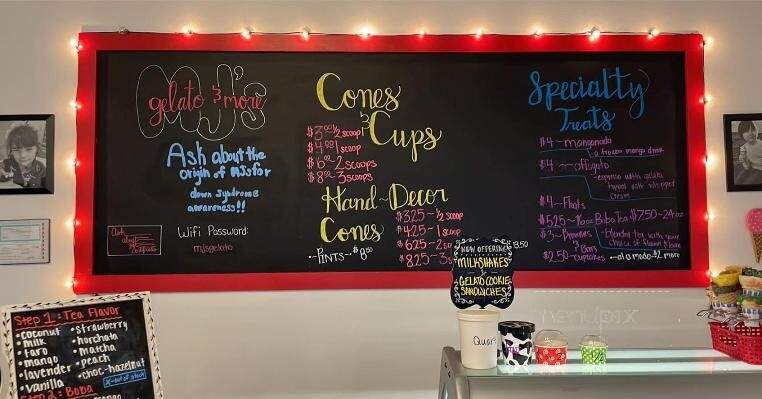 MJ's
gelato & more
Ask about the
origin of MJs for
down syndrome
awareness!!
WiFi Password:
mjsgelato
Ask
about
Cones
& Cups
$3 1/2 scoop
1 scoop
2 scoops
3 scoops
Hand-Decor
Cones
$3.25 - 1/2 scoop
$4.25 - 1 scoop
$6.25 - 2
$8.25 - 3
Pints - $8.50
Specialty
Treats
$4 - mangonada
- a frozen mango drink
$4 - affogato
- espresso with gelato
topped with whipped
cream
$4 - Floats
$5.25 - Boba Tea $7.50 - 24oz
- blended tea with your
choice of
$3 - Brownies
& Bars
$2.50 - cupcakes
a la mode - $2 more
Now offering
Milkshakes
&
Gelato Cookie
Sandwiches
Quart
Step 1: Tea Flavor
•coconut •strawberry
milk •horchata
•taro •matcha
•mango •peach
•lavender •choc-hazelnut
•vanilla
X-out of stock
Step 2: Boba
mango
menupix